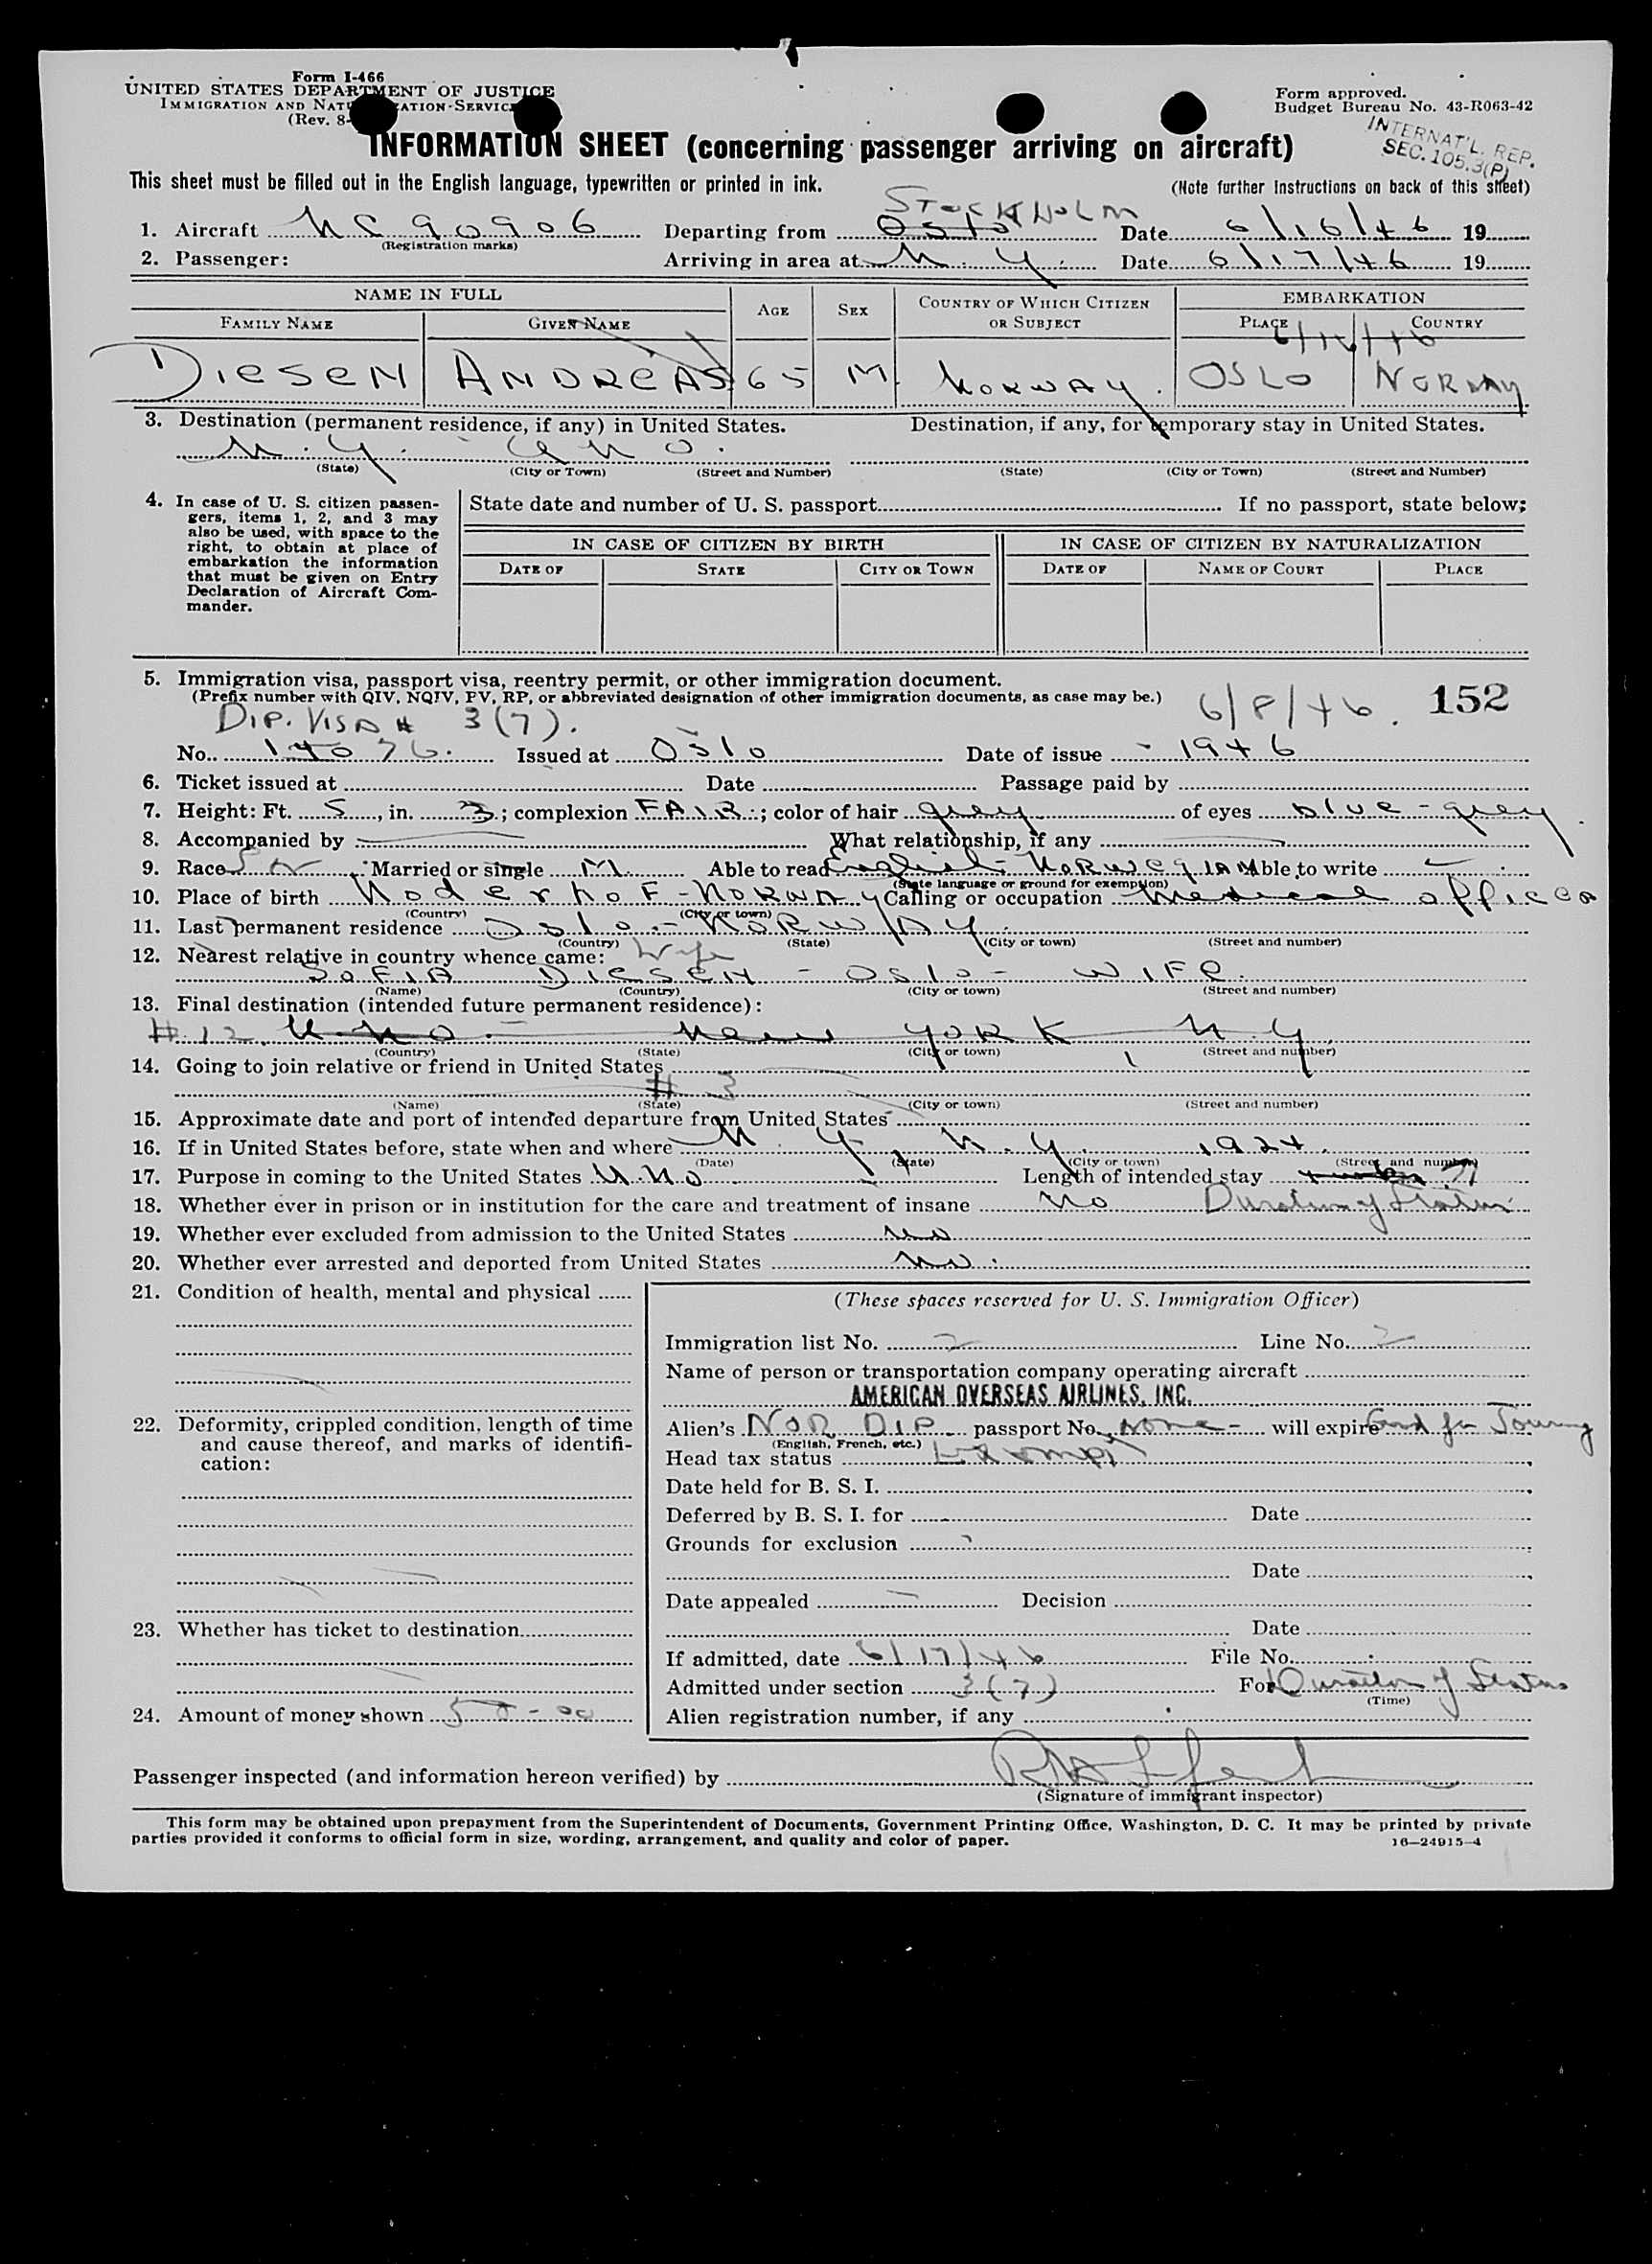 Form I-466
UNITED STATES DEPARTMENT OF JUSTICE
IMMIGRATION AND NATURALIZATION SERVICE
(Rev. 8-
Form approved.
Budget Bureau No. 43-R063-42
INTERNAT'L. REP.
SEC. 105.3(P)
INFORMATION SHEET (concerning passenger arriving on aircraft)
This sheet must be filled out in the English language, typewritten or printed in ink.
(Note further instructions on back of this sheet)
STOCKHOLM
1. Aircraft NC 90906 Departing from Oslo Date 6/16/46 19
(Registration marks)
2. Passenger: Arriving in area at N.Y. Date 6/17/46 19
NAME IN FULL AGE SEX COUNTRY OF WHICH CITIZEN OR SUBJECT EMBARKATION
FAMILY NAME GIVEN NAME PLACE COUNTRY
6/16/46
DIESEN ANDREAS 65 M. NORWAY. OSLO NORWAY
3. Destination (permanent residence, if any) in United States. Destination, if any, for temporary stay in United States.
N.Y. UNO.
(State) (City or Town) (Street and Number) (State) (City or Town) (Street and Number)
4. In case of U. S. citizen passengers, items 1, 2, and 3 may also be used, with space to the right, to obtain at place of embarkation the information that must be given on Entry Declaration of Aircraft Commander.
State date and number of U. S. passport If no passport, state below:
IN CASE OF CITIZEN BY BIRTH IN CASE OF CITIZEN BY NATURALIZATION
DATE OF STATE CITY OR TOWN DATE OF NAME OF COURT PLACE
5. Immigration visa, passport visa, reentry permit, or other immigration document.
(Prefix number with QIV, NQIV, PV, RP, or abbreviated designation of other immigration documents, as case may be.)
DIP. VISA # 3(7). 6/8/46. 152
No. 14076. Issued at Oslo Date of issue - 1946
6. Ticket issued at Date Passage paid by
7. Height: Ft. 5, in. 3; complexion FAIR; color of hair grey of eyes blue-grey.
8. Accompanied by What relationship, if any
9. Race Married or single M. Able to read English - NORWEGIAN Able to write
(State language or ground for exemption)
10. Place of birth Noderhof - NORWAY Calling or occupation Medical officer
(Country) (City or town)
11. Last permanent residence Oslo - NORWAY.
(Country) (State) (City or town) (Street and number)
12. Nearest relative in country whence came: Wife
SOFIA DIESEN - Oslo - WIFE.
(Name) (Country) (City or town) (Street and number)
13. Final destination (intended future permanent residence):
# 12 UNO - New YORK N.Y.
(Country) (State) (City or town) (Street and number)
14. Going to join relative or friend in United States
# 3
(Name) (State) (City or town) (Street and number)
15. Approximate date and port of intended departure from United States
16. If in United States before, state when and where N.Y. N.Y. 1924.
(Date) (State) (City or town) (Street and number)
17. Purpose in coming to the United States U.N.O Length of intended stay
18. Whether ever in prison or in institution for the care and treatment of insane No Duration of Status
19. Whether ever excluded from admission to the United States No
20. Whether ever arrested and deported from United States No.
21. Condition of health, mental and physical
22. Deformity, crippled condition, length of time and cause thereof, and marks of identification:
23. Whether has ticket to destination
24. Amount of money shown 50-00
(These spaces reserved for U. S. Immigration Officer)
Immigration list No. 2 Line No. 2
Name of person or transportation company operating aircraft
AMERICAN OVERSEAS AIRLINES, INC.
Alien's NOR DIP passport No. NONE - will expire Good for Journey
(English, French, etc.)
Head tax status Exempt
Date held for B. S. I.
Deferred by B. S. I. for Date
Grounds for exclusion
Date
Date appealed Decision
Date
If admitted, date 6/17/46 File No.
Admitted under section 3(7) For Duration of Status
(Time)
Alien registration number, if any
Passenger inspected (and information hereon verified) by
(Signature of immigrant inspector)
This form may be obtained upon prepayment from the Superintendent of Documents, Government Printing Office, Washington, D. C. It may be printed by private
parties provided it conforms to official form in size, wording, arrangement, and quality and color of paper.
16—24915-4